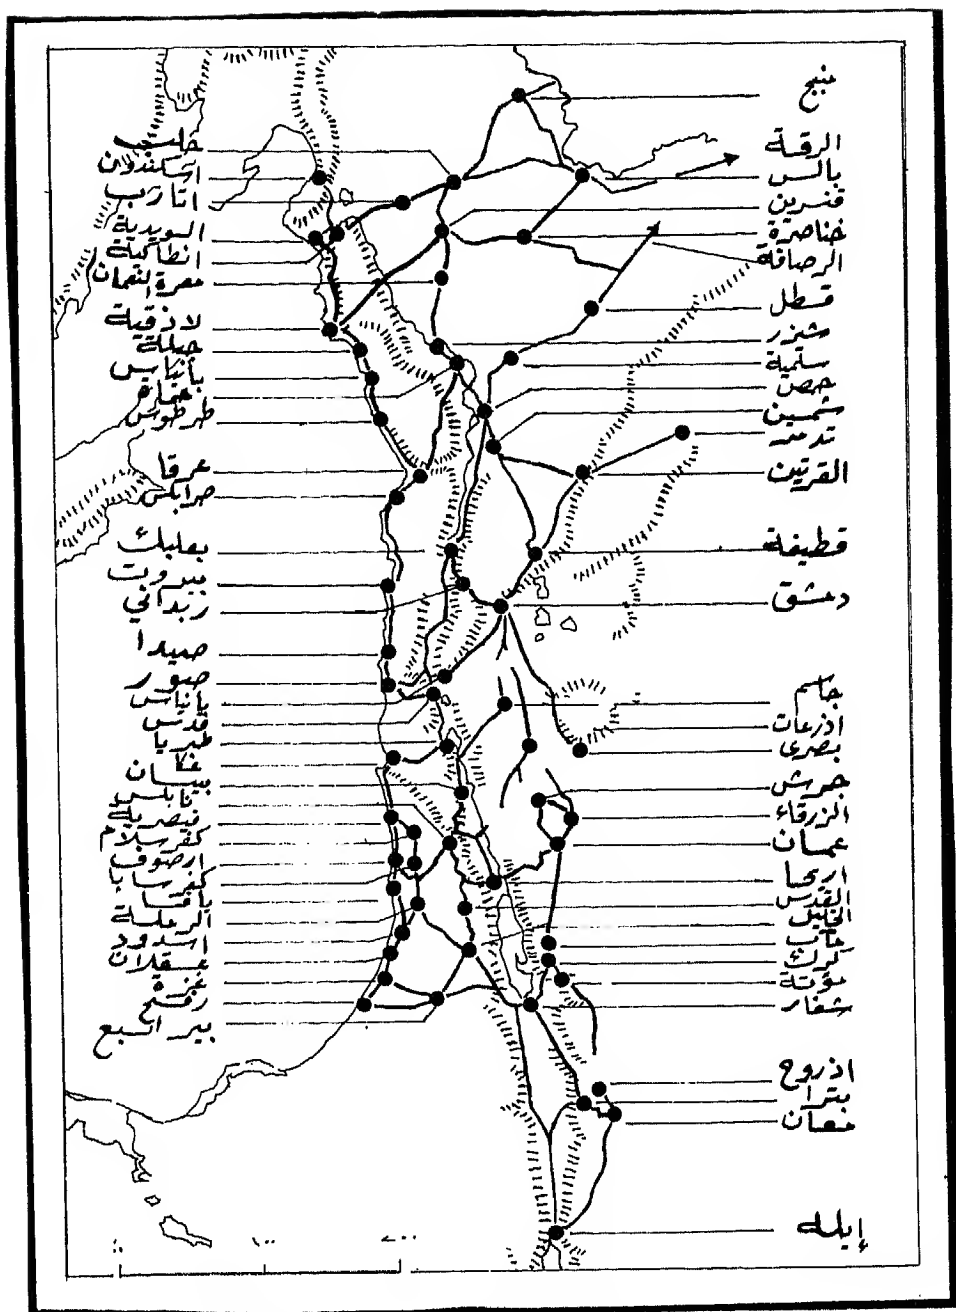 منبج
الرقة
بالس
قنسرين
خناصرة
الرصافة
قسطل
شيزر
سلمية
حمص
شمسين
تدمر
القرتين
قطيفة
دمشق
جاسم
اذرعات
بصرى
جرش
الزرقاء
عمان
اريحا
القدس
الخليل
مآب
الكرك
مؤتة
شغار
اذروح
بترا
معان
إيله
حلب
اسكندرون
اتارب
السويدية
انطاكية
معرة النعمان
لاذقية
جبلة
بانياس
حماة
طرطوس
عرقا
طرابلس
بعلبك
بيروت
زبداني
صيدا
صور
بانياس
قدس
طبريا
عكا
بيسان
نابلس
قيصرية
كفرسلام
ارصوف
كفرسابا
يافا
الرملة
اسدود
عسقلان
غزة
رفح
بير السبع
١٠٠
٢٠٠